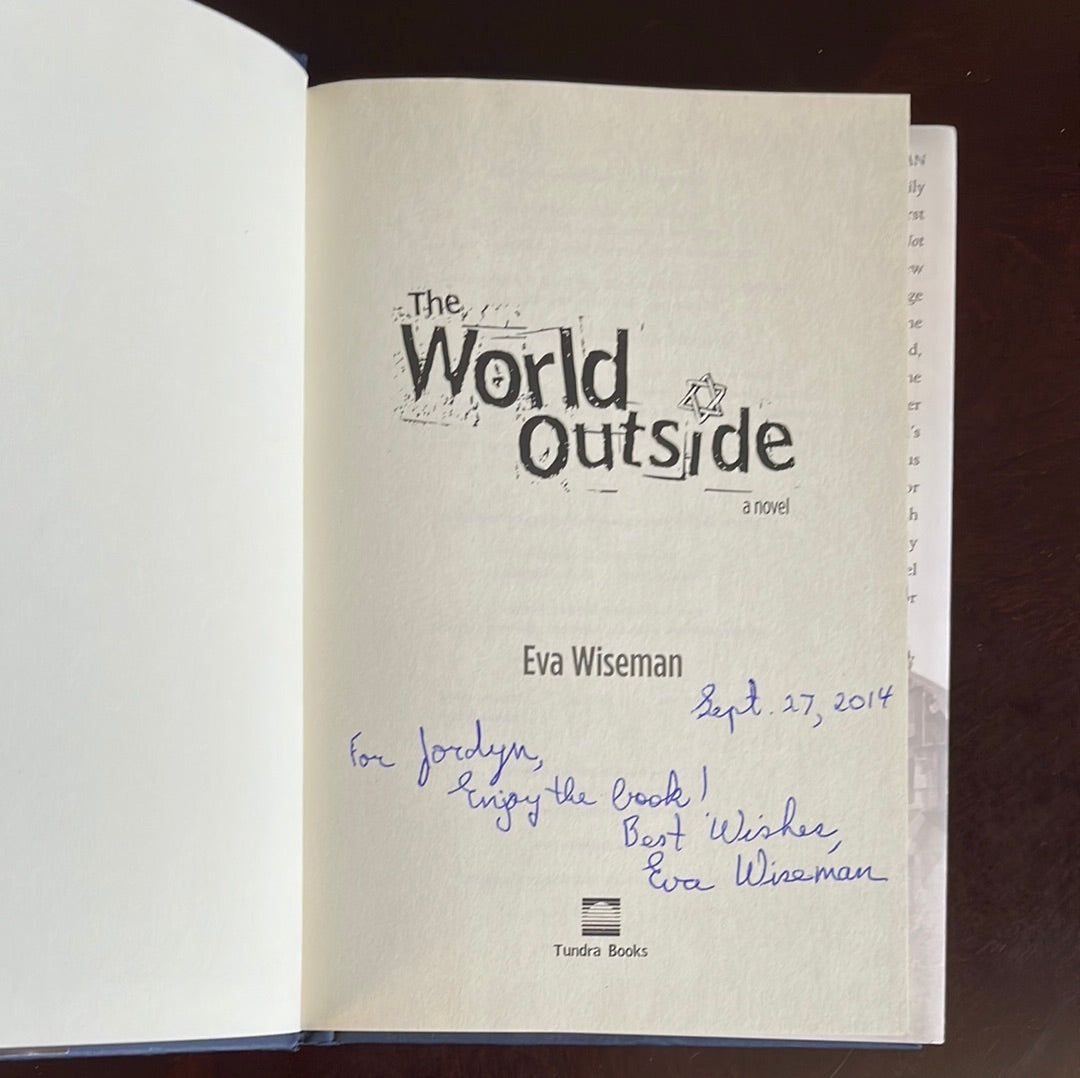 The
World
Outside
a novel
Eva Wiseman
Sept. 27, 2014
For Jordyn,
Enjoy the book!
Best Wishes,
Eva Wiseman
Tundra Books
ily
ge
d,
er
's
h
y